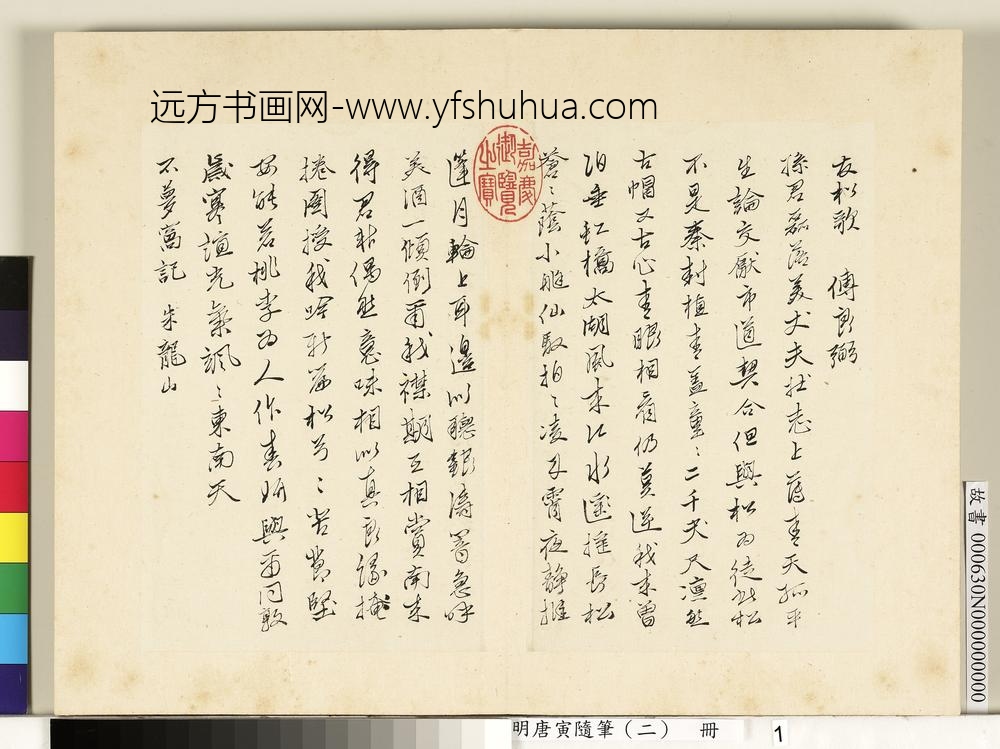 远方书画网-www.yfshuhua.com
友松歌 傅朝弼
孫君磊落美丈夫壯志上薄青天孤平
生論交厭市道契合但與松為徒此松
不是秦封植青蓋童童二千尺凜然
古帽又古心青眼相看仍莫逆我來曾
泊垂虹橋太湖風來江水遙推長松
蒼蒼蔭小艇仙馭拍拍凌丹霄夜靜推
蓬月輪上耳邊似聽銀濤響急呼
美酒一傾倒爾我襟期互相賞南來
得君非偶然意味相似真
捲圖授我吟新篇松兮松兮若貴堅
安能若桃李為人作春妍與爾同敦
歲寒誼光氣颯颯東南天
不夢萬記 朱龍山
嘉慶
御覽
之寶
故書 000630N000000000
明唐寅隨筆(二) 冊 1